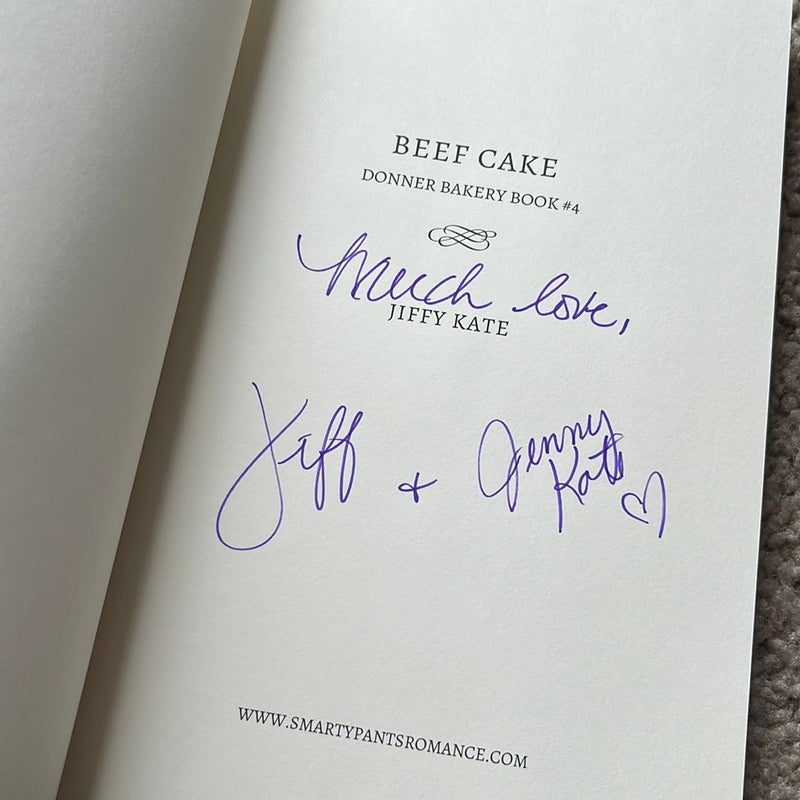 BEEF CAKE
DONNER BAKERY BOOK #4
Much love,
JIFFY KATE
Jiff + Jenny
Kate
WWW.SMARTYPANTSROMANCE.COM